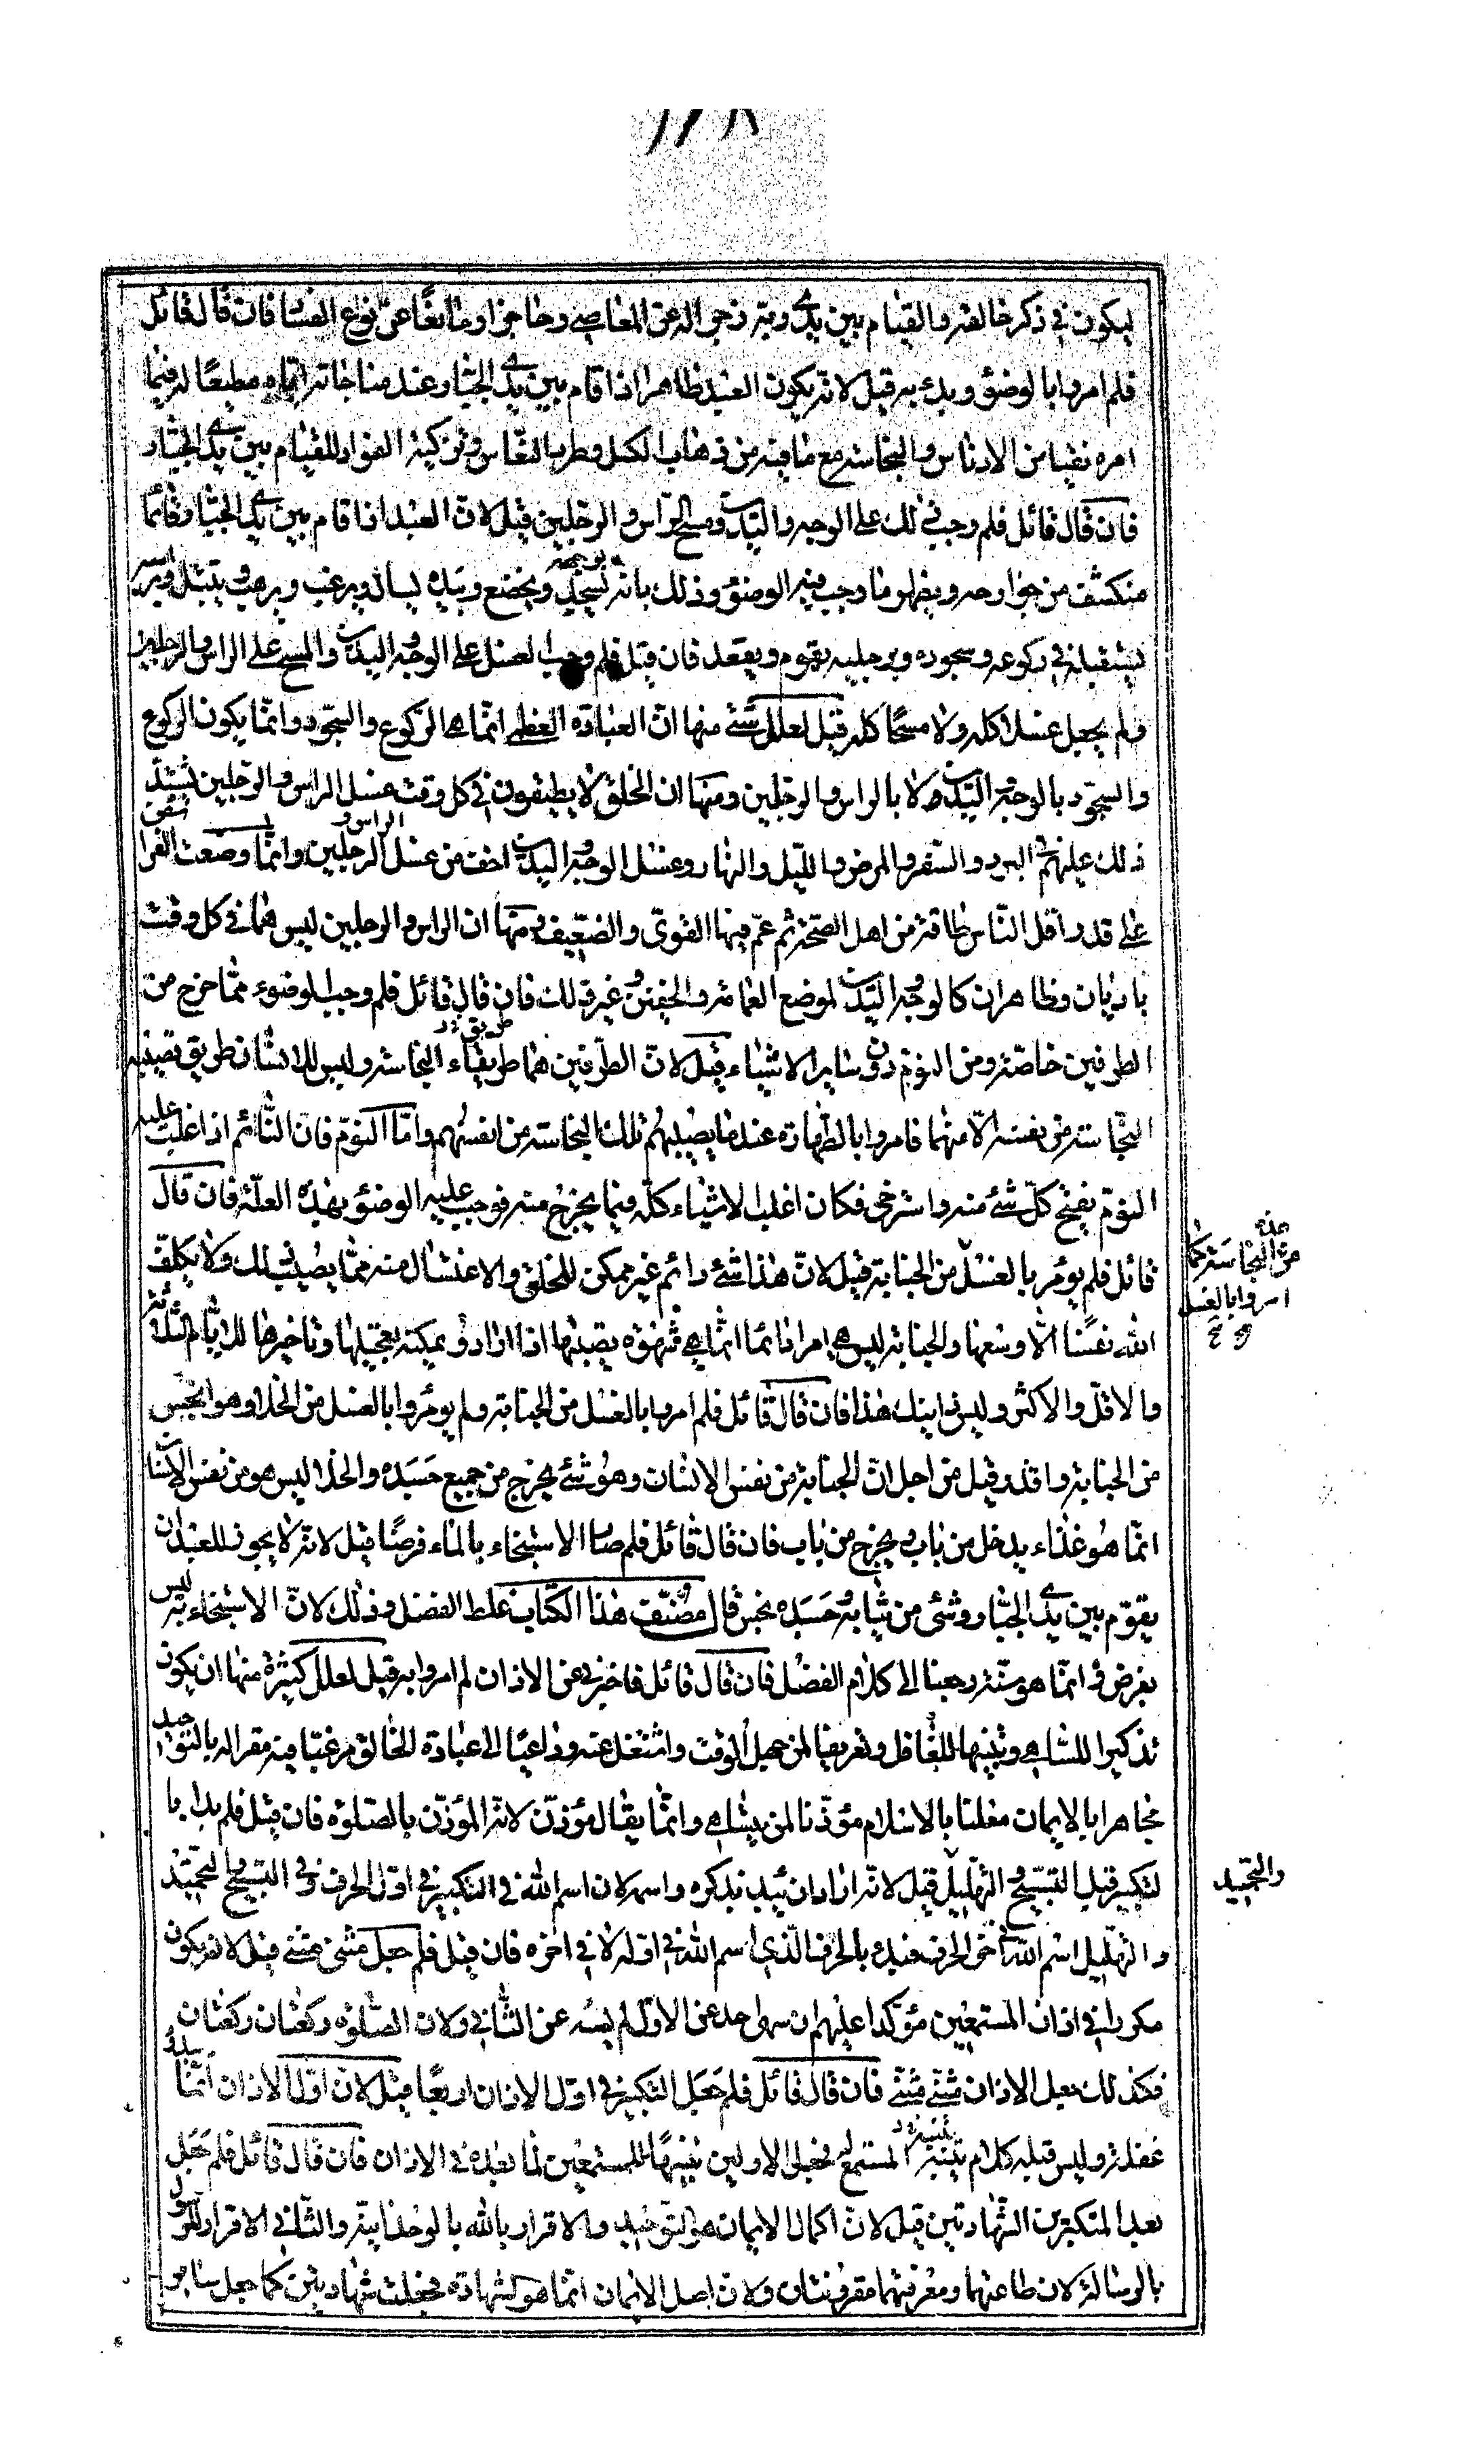 ليكون في ذكر خالقه والقيام بين يدي ربه زجرا له عن المعاصي وحاجزا ومانعا عن نوع الفساد فان قال قائل
فلم امروا بالوضوء وبدء به قيل لانه يكون العبد طاهرا اذا قام بين يدي الجبار عند مناجاته اياه مطيعا له فيما
امره نقيا من الادناس والنجاسة مع ما فيه من ذهاب الكسل وطرد النعاس وتزكية الفؤاد للقيام بين يدي الجبار
فان قال قائل فلم وجب ذلك على الوجه واليدين ومسح الراس والرجلين قيل لان العبد اذا قام بين يدي الجبار قائما
ينكشف من جوارحه ويظهر ما وجب فيه الوضوء وذلك بانه بوجهه يسجد ويخضع وبيده يسال ويرغب ويرهب ويتبتل وبراسه
يستقبله في ركوعه وسجوده وبرجليه يقوم ويقعد فان قيل فلم وجب الغسل على الوجه واليدين والمسح على الراس والرجلين
ولم يجعل غسلا كله ولا مسحا كله قيل لعلل شتى منها ان العبادة العظمى انما هي الركوع والسجود وانما يكون الركوع
والسجود بالوجه واليدين لا بالراس والرجلين ومنها ان الخلق لا يطيقون في كل وقت غسل الراس والرجلين يشتد
ذلك عليهم في البرد والسفر والمرض والليل والنهار وغسل الوجه واليدين اخف من غسل الراس و الرجلين وانما وضعت الفرائض
على قدر اقل الناس طاقة من اهل الصحة ثم عم فيها القوي والضعيف ومنها ان الراس والرجلين ليس هما في كل وقت
باديان وظاهران كالوجه واليدين لموضع العمامة والخفين وغير ذلك فان قال قائل فلم وجب الوضوء مما خرج من
الطرفين خاصة ومن النوم دون ساير الاشياء قيل لان الطرفين هما طريقاء النجاسة وليس للانسان طريق تصيبه
النجاسة من نفسه الا منهما فامروا بالطهارة عند ما يصيبهم تلك النجاسة من انفسهم واما النوم فان النائم اذا غلب عليه
النوم يفتح كل شئ منه واسترخى فكان اغلب الاشياء كله فيما يخرج منه فوجب عليه الوضوء بهذه العلة فان قال
قائل فلم يؤمر بالغسل من الجنابة قيل لان هذا شئ دائم غير ممكن للخلق والاغتسال منه مما يصيب ذلك ولا يكلف
الله نفسا الا وسعها والجنابة ليس هي امر دائما انما هي شهوة يصيبها اذا اراد ويمكنه تعجيلها وتاخيرها للايام الثلثة
والاقل والاكثر وليس ذانيك هذا فان قال قائل فلم امروا بالغسل من الجنابة ولم يؤمروا بالغسل من الخلا وهو انجس
من الجنابة واقذر قيل من اجل ان الجنابة من نفس الانسان وهو شئ يخرج من جميع جسده والخلا ليس هو من نفس الانسان
انما هو غذاء يدخل من باب ويخرج من باب فان قال قائل فلم صار الاستنجاء بالماء فرضا قيل لانه لا يجوز للعبد ان
يقوم بين يدي الجبار وشئ من ثيابه وجسده نجس قال مصنف هذا الكتاب غلط الفضل وذلك لان الاستنجاء به ليس
بفرض انما هو سنة رجعنا الى كلام الفضل فان قال قائل فاخبرني عن الاذان لم امروا به قيل لعلل كثيرة منها ان يكون
تذكيرا للساهي وتنبيها للغافل وتعريفا لمن جهل الوقت واشتغل عنه وداعيا الى عبادة الخالق مرغبا فيه مقرا له بالتوحيد
مجاهرا بالايمان معلنا بالاسلام مؤذنا لمن يساهي وانما يقال مؤذن لانه المؤذن بالصلوة فان قيل فلم بدا با
لتكبير قبل التسبيح والتهليل قيل لانه اراد ان يبدء بذكره واسمه لان اسم الله في التكبير في اول الحرف وفي التسبيح والتحميد
والتهليل اسم الله في اخر الحرف فبدء بالحرف الذي اسم الله في اوله لا في اخره فان قيل فلم جعل مثنى مثنى قيل لان يكون
مكررا في اذان المستمعين مؤكدا عليهم ان سهى احد عن الاول لم يسه عن الثاني ولان الصلوة ركعتان ركعتان
فكذلك جعل الاذان مثنى مثنى فان قال قائل فلم جعل التكبير في اول الاذان اربعا قيل لان اول الاذان انما يبدء
غفلة وليس قبله كلام تنبيه المستمع فجعل الاوليين تنبيها للمستمعين لما بعده في الاذان فان قال قائل فلم جعل
بعد التكبير من الشهادتين قيل لان اكمال الايمان هو التوحيد والاقرار بالله بالوحدانية والثاني الاقرار للرسول
بالرسالة لان طاعتهما ومعرفتهما مقرونتان ولان اصل الايمان انما هو الشهادة فجعلت شهادتين كما جعل ساير
من النجاسة كما
امروا بالغسل
والتحميد